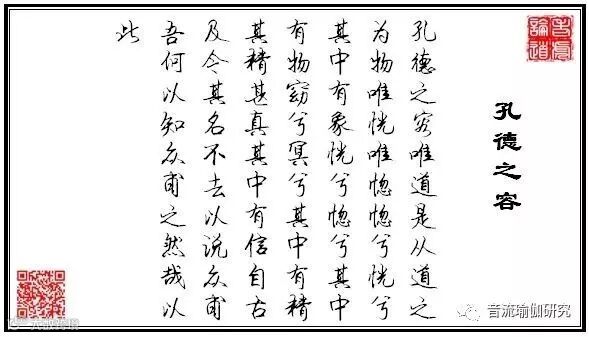 孔德之容
孔德之容唯道是从道之
为物唯恍唯惚惚兮恍兮
其中有象恍兮惚兮其中
有物窈兮冥兮其中有精
其精甚真其中有信自古
及今其名不去以说众甫
吾何以知众甫之然哉以
此
音流瑜伽研究